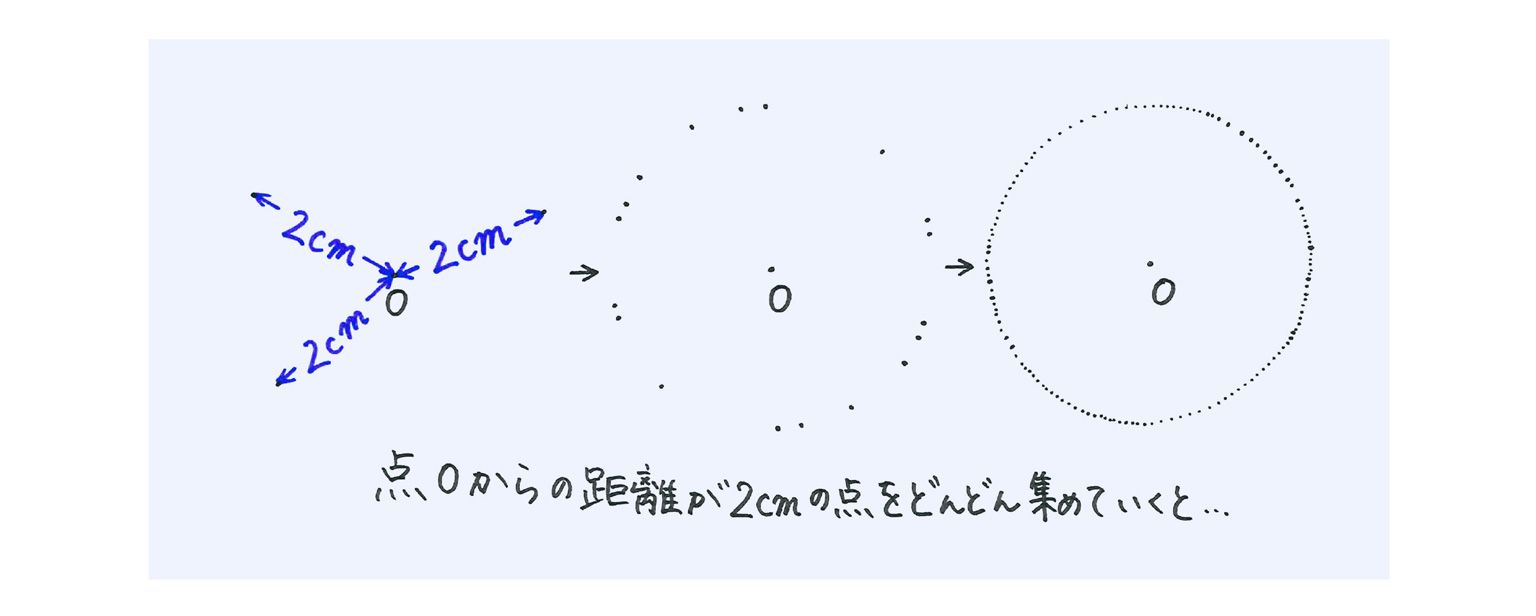 2cm
2cm
2cm
O
O
O
点Oからの距離が2cmの点をどんどん集めていくと…